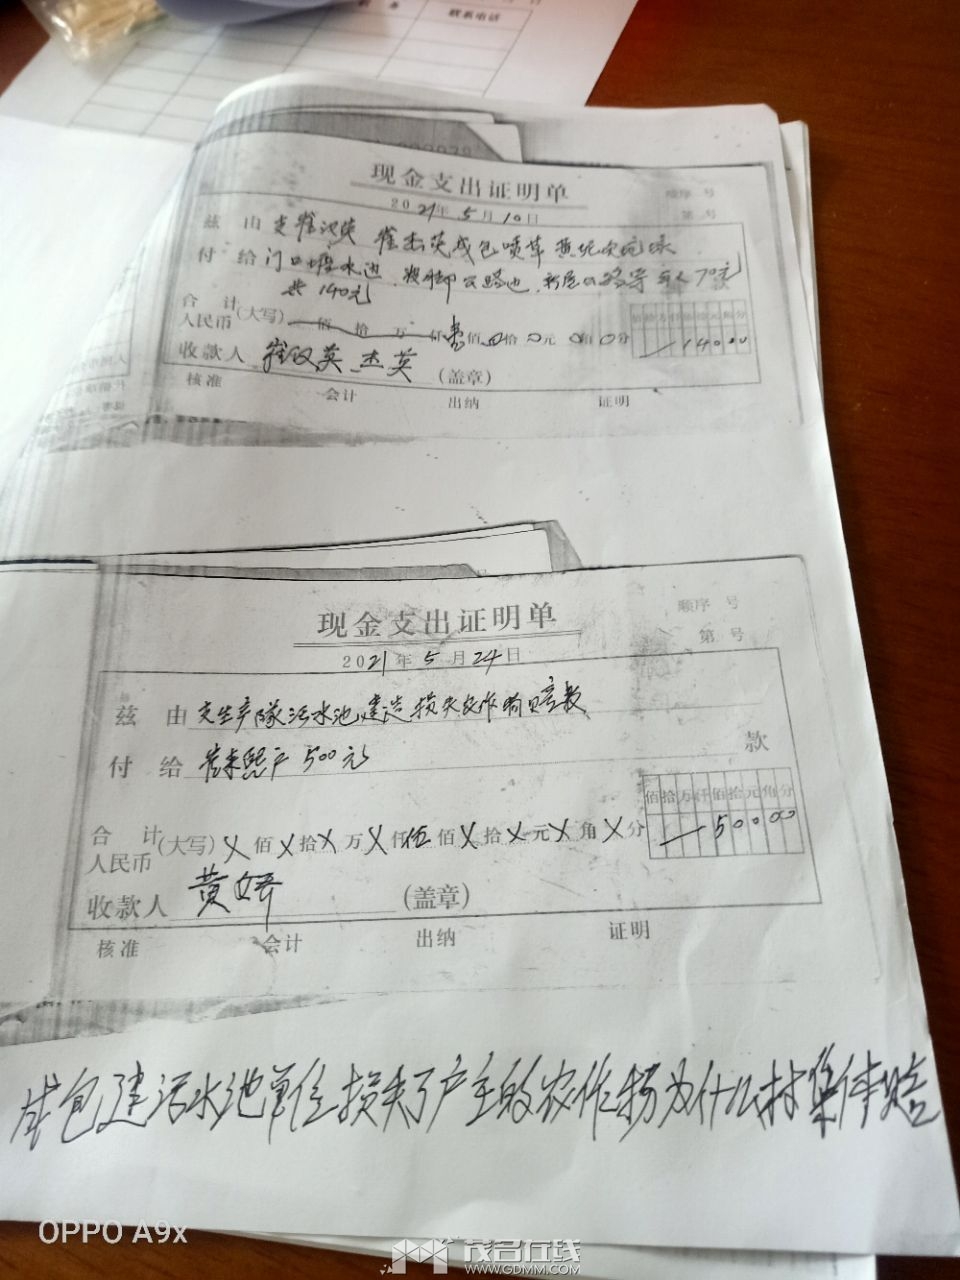 联系电话
现金支出证明单
顺序 号
2021年5月10日
第 号
兹 由 支崔汉英 崔杰英成包喷草
付 给 门口塘水边 公路边 每人70元
共140元
款
合 计 (大写) 佰 拾 万 仟 壹佰 拾 0元 0角 0分
人民币
佰拾万仟佰拾元角分
14000
收款人 崔汉英 杰英 (盖章)
核准 会计 出纳 证明
现金支出证明单
顺序 号
2021年5月24日
第 号
兹 由 支生产隊污水池建造损失农作物赔款
付 给 500元
款
合 计 (大写) X佰X拾X万X仟伍佰X拾X元X角X分
人民币
佰拾万仟佰拾元角分
50000
收款人 黄 (盖章)
核准 会计 出纳 证明
成包建污水池单位损失了产主的农作物为什么村集体赔
OPPO A9x
茂名在线
WWW.GDMM.COM